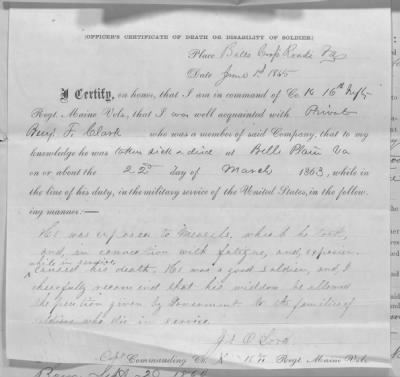 (OFFICER'S CERTIFICATE OF DEATH OR DISABILITY OF SOLDIER.)
Place Balls Cross Roads Va
Date June 1st 1865
I Certify, on honor, that I am in command of Co. K 16th Infty
Regt Maine Vols, that I was well acquainted with Private
Benj. F. Clark who was a member of said Company, that to my
knowledge he was taken sick & died at Belle Plain Va
on or about the 22d day of March 1863, while in
the line of his duty, in the military service of the United States, in the follow-
ing manner:—
He was exposed to Measels, which he took,
and, in connection with fatigue, and, exposure
while in service
caused his death. He was a good soldier, and I
cheerfully recomend that his widdow be allowed
the pension given by Government to the families of
soldiers who die in service
Commanding Co. K 16th Regt. Maine Vols.
Sept 20